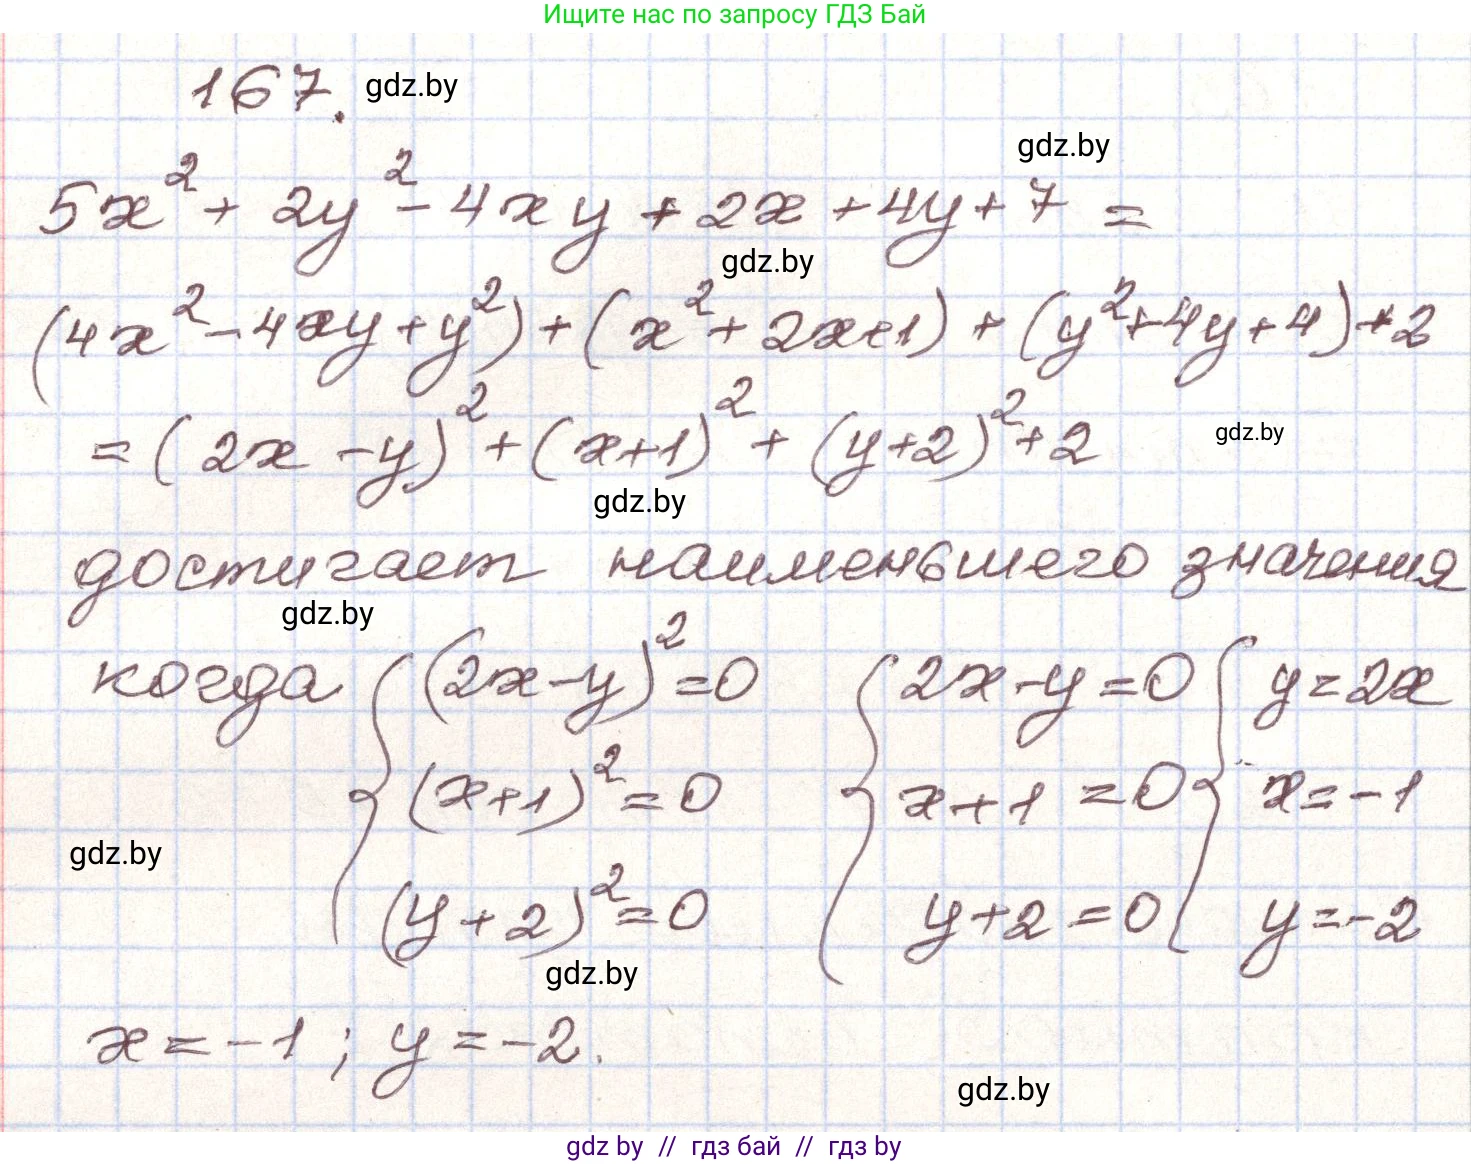 Ищите нас по запросу ГДЗ Бай
167. gdz.by
gdz.by
5x² + 2y² - 4xy + 2x + 4y + 7 =
gdz.by
(4x² - 4xy + y²) + (x² + 2x + 1) + (y² + 4y + 4) + 2
= (2x - y)² + (x+1)² + (y+2)² + 2 gdz.by
gdz.by
достигает наименьшего значения
gdz.by
когда { (2x-y)² = 0 { 2x-y = 0 { y = 2x
(x+1)² = 0 x+1 = 0 x = -1
gdz.by
(y+2)² = 0 y+2 = 0 y = -2
gdz.by
x = -1 ; y = -2.
gdz.by
gdz by // гдз бай // гдз by